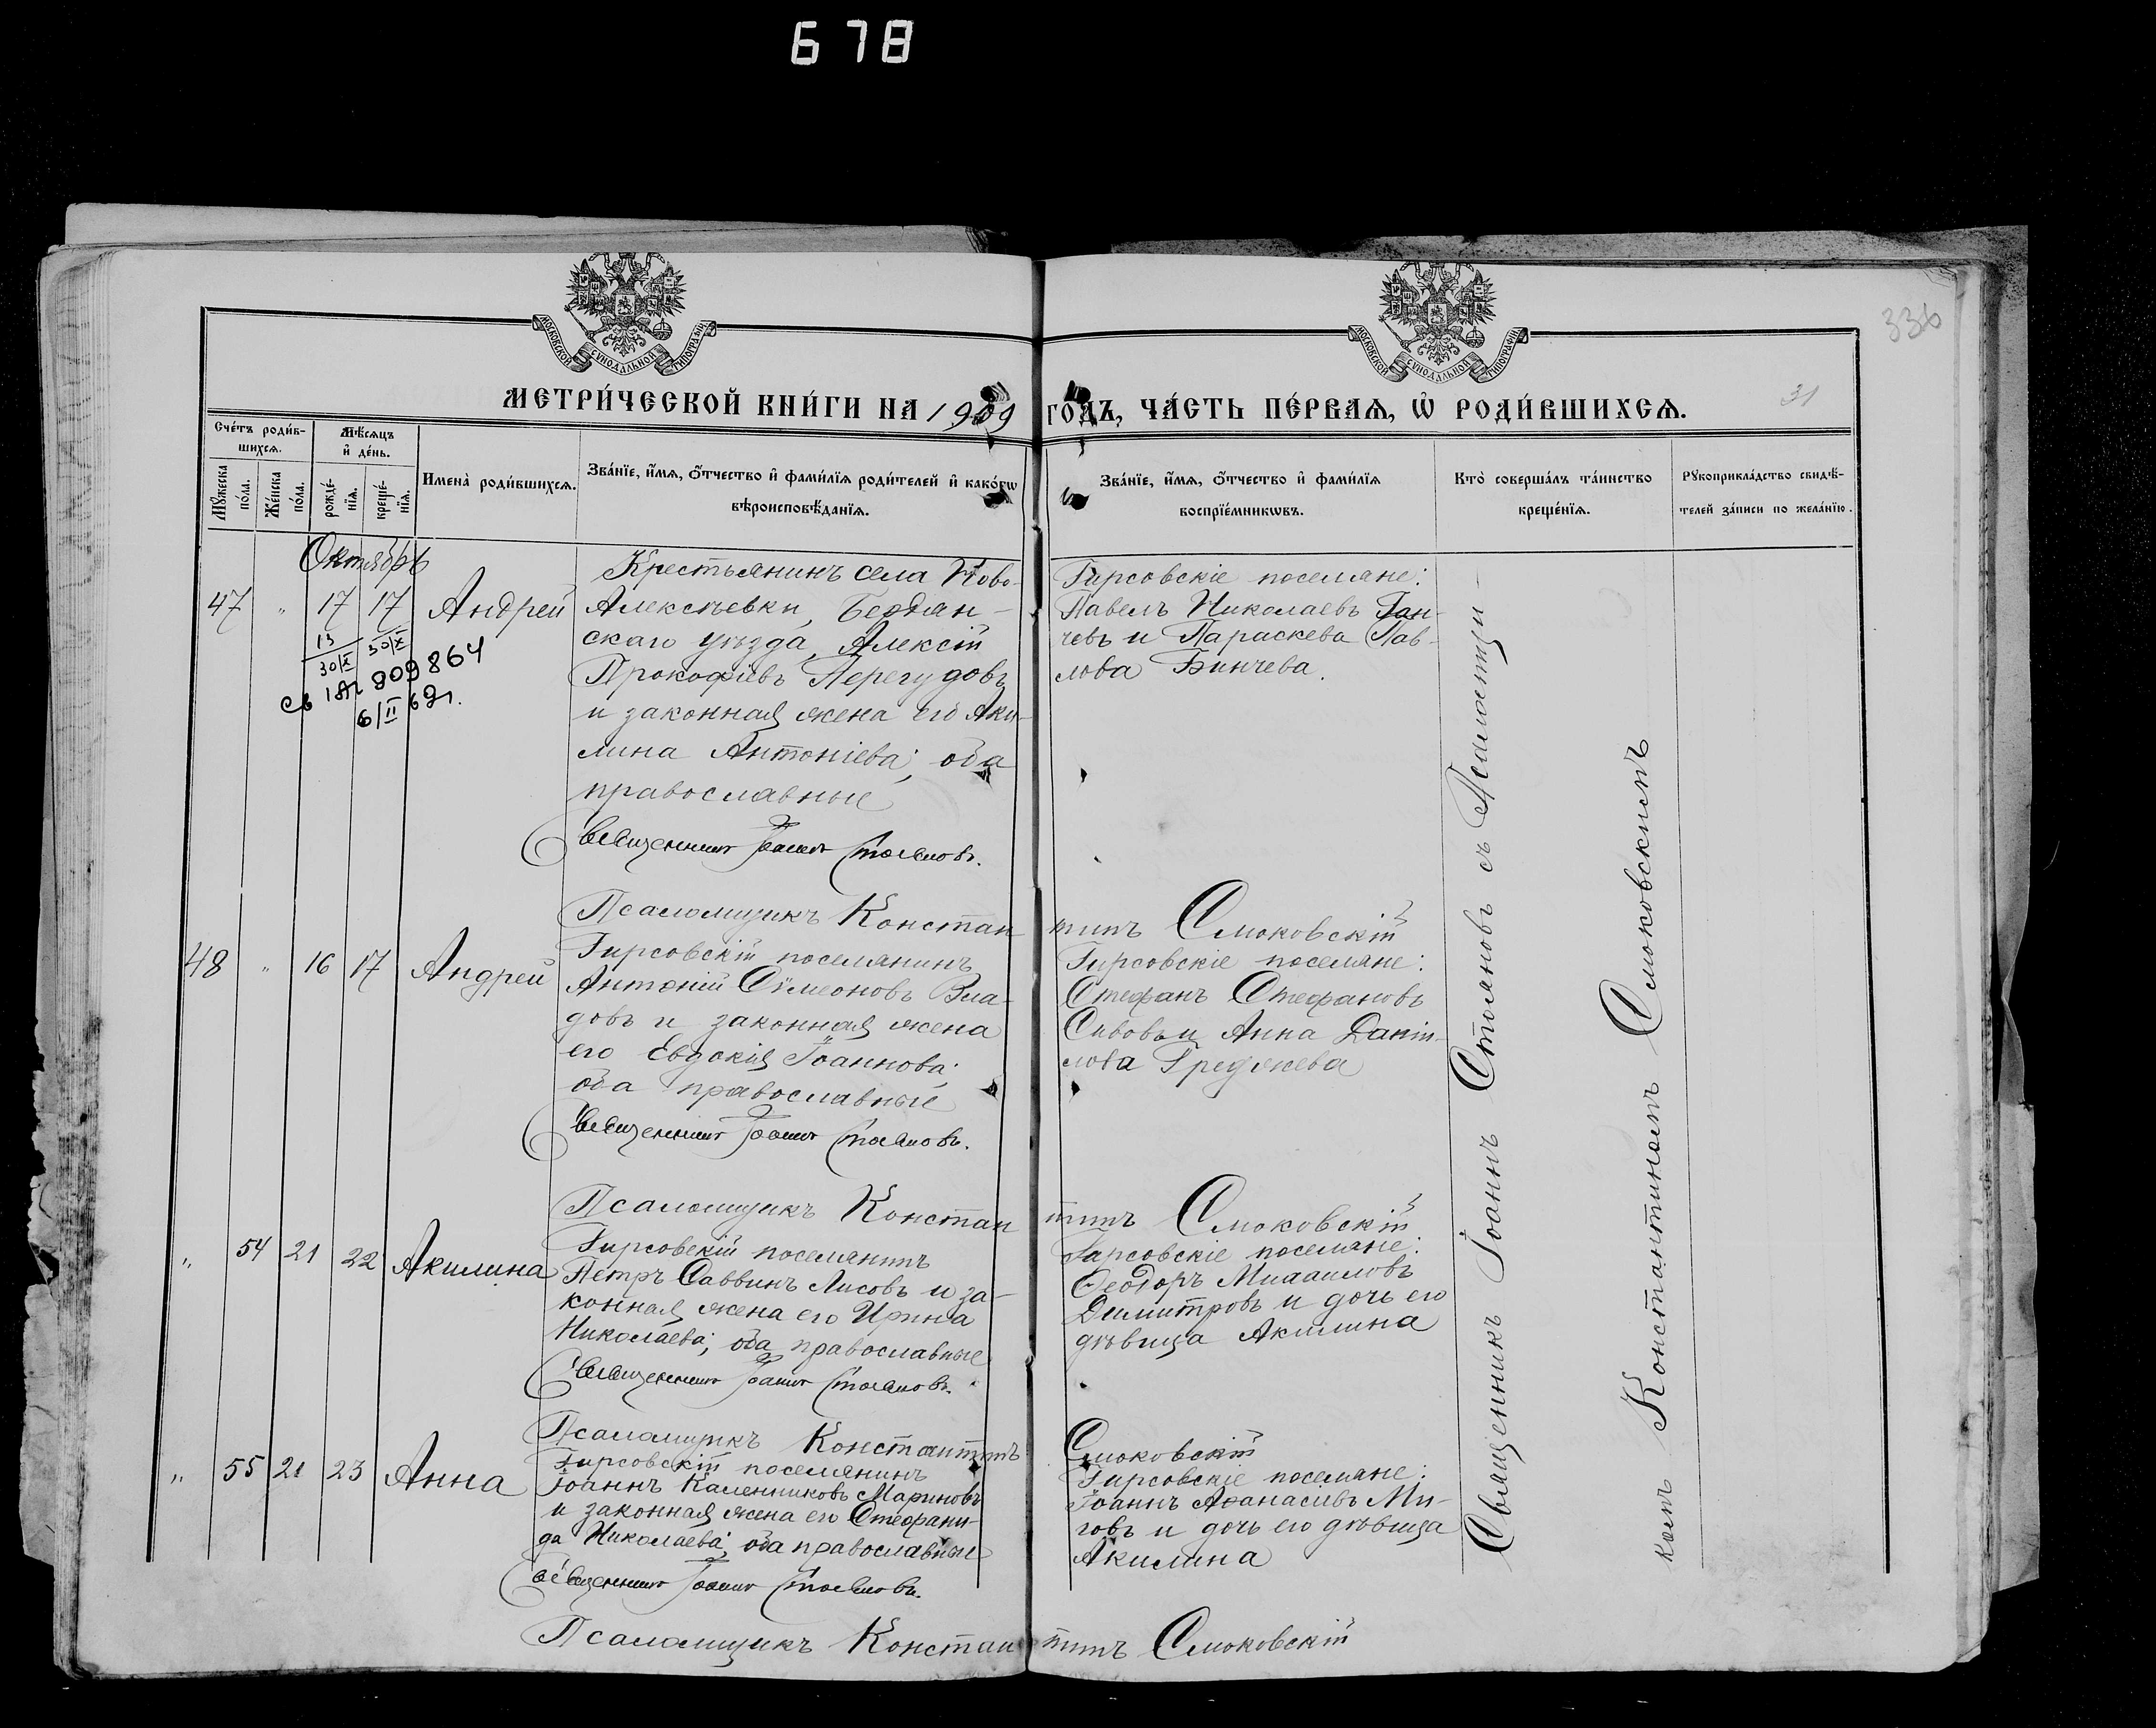 678
МОСКОВСКОЙ СѴНОДАЛЬНОЙ ТИПОГРАФІИ
МОСКОВСКОЙ СѴНОДАЛЬНОЙ ТИПОГРАФІИ
336
31
МЕТРИ́ЧЕСКОЙ КНИ́ГИ НА 1909 ГО́ДЪ, ЧА́СТЬ ПЕ́РВАЯ, Ѡ҆ РОДИ́ВШИХСЯ.
Сче́тъ роди́в-
шихся.
Мѣ́сяцъ
и҆ де́нь.
Мꙋ́жеска
по́ла.
Же́нска
по́ла.
рожде́-
нїя.
креще́-
нїя.
Имена̀ роди́вшихся.
Зва́нїе, и҆́мя, ѻ҆́тчество и҆ фами́лїя роди́телей и҆ како́гѡ
вѣроисповѣ́данїя.
Зва́нїе, и҆́мя, ѻ҆́тчество и҆ фами́лїя
воспрїе́мникѡвъ.
Кто̀ соверша́лъ та́инство
креще́нїя.
Рꙋкоприкла́дство свидѣ́-
телей за́писи по жела́нїю.
Октябрь
47 " 17 17 Андрей
13
30/X 30/X
св 1АП 809864
6/II 62г.
Крестьянинъ села Ново-
Алексѣевки, Бердян-
скаго уѣзда, Алексій
Прокофіевъ Перегудовъ
и законная жена его Аки-
лина Антоніева; оба
православные
Священникъ Іоаннъ Стояновъ.
Гирсовскіе поселяне:
Павелъ Николаевъ Ган-
чевъ и Параскева Пав-
лова Бинчева.
Псаломщикъ Константинъ Смоковскій
48 " 16 17 Андрей
Гирсовскій поселянинъ
Антоній Симеоновъ Вла-
довъ и законная жена
его Евдокія Іоаннова;
оба православные
Священникъ Іоаннъ Стояновъ.
Гирсовскіе поселяне:
Стефанъ Стефановъ
Сивовъ и Анна Даніи-
лова Греджева
Псаломщикъ Константинъ Смоковскій
" 54 21 22 Акилина
Гирсовскій поселянинъ
Петръ Саввинъ Лисовъ и за-
конная жена его Ирина
Николаева; оба православные
Священникъ Іоаннъ Стояновъ.
Гирсовскіе поселяне:
Ѳеодоръ Михаиловъ
Димитровъ и дочь его
дѣвица Акилина
Псаломщикъ Константинъ Смоковскій
" 55 21 23 Анна
Гирсовскій поселянинъ
Іоаннъ Калинниковъ Мариновъ
и законная жена его Стефани-
да Николаева; оба православные
Священникъ Іоаннъ Стояновъ.
Гирсовскіе поселяне:
Іоаннъ Аѳанасіевъ Ми-
говъ и дочь его дѣвица
Акилина
Псаломщикъ Константинъ Смоковскій
Священникъ Іоаннъ Стояновъ съ Псаломщи-
комъ Константиномъ Смоковскимъ